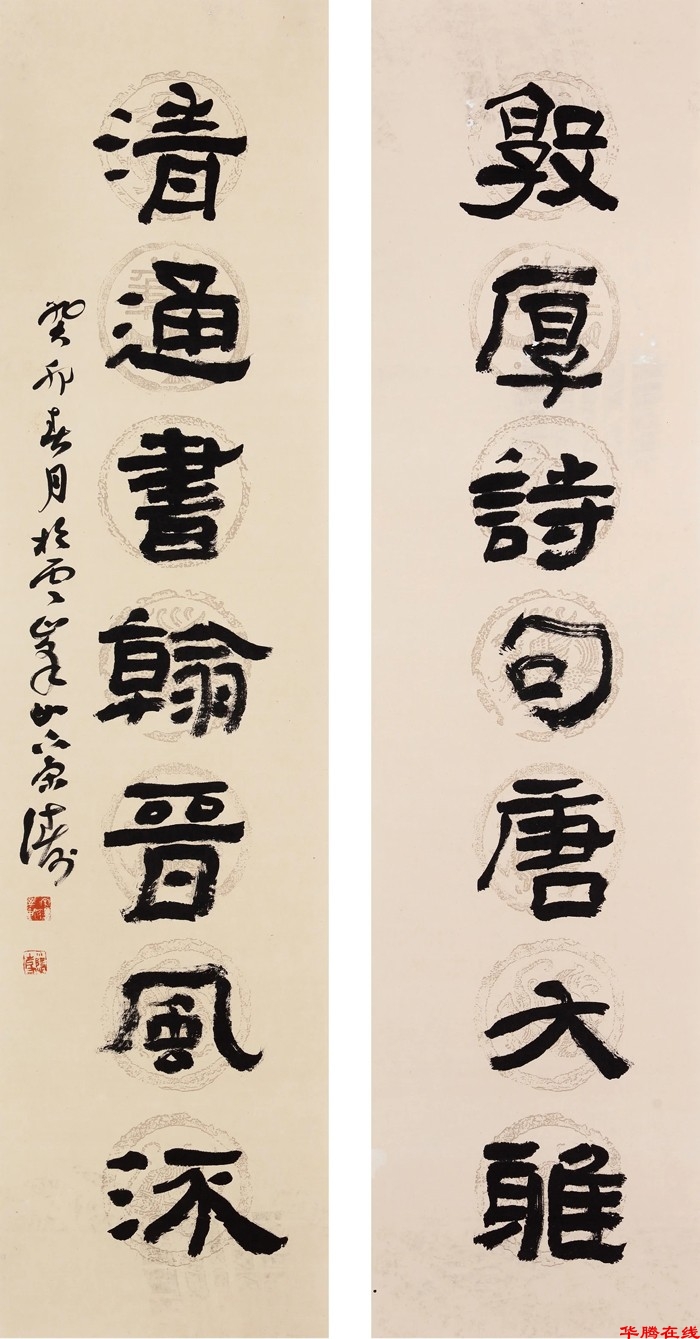 敦厚詩句唐大雅
清通書翰晉風㳅
癸卯春月於雲峯山下
华腾在线